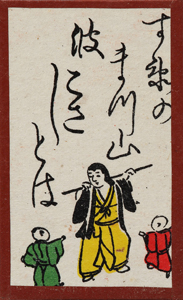 すゑの
まつ山
波こさ
しとは